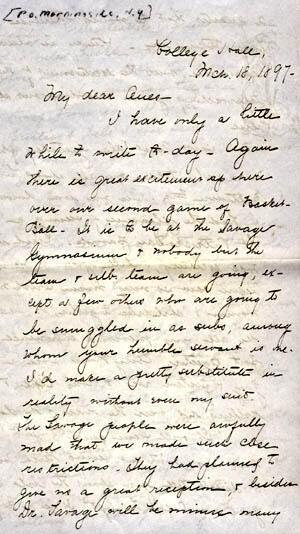 [P.O. Morningside, N.Y]
College Hall,
Mch. 18, 1897-
My dear Ones-
I have only a little
while to write to-day- Again
there is great excitement up here
over our second game of Basket-
Ball- It is to be at the Savage
Gymnasium & nobody but the
team & sub. team are going, ex-
cept a few others who are going to
be smuggled in as subs, among
whom your humble servant is one.
I'd make a pretty substitute in
reality without even my suit
The Savage people were awfully
mad that we made such close
restrictions. They had planned to
give us a great reception, & besides
Dr. Savage will be minus many